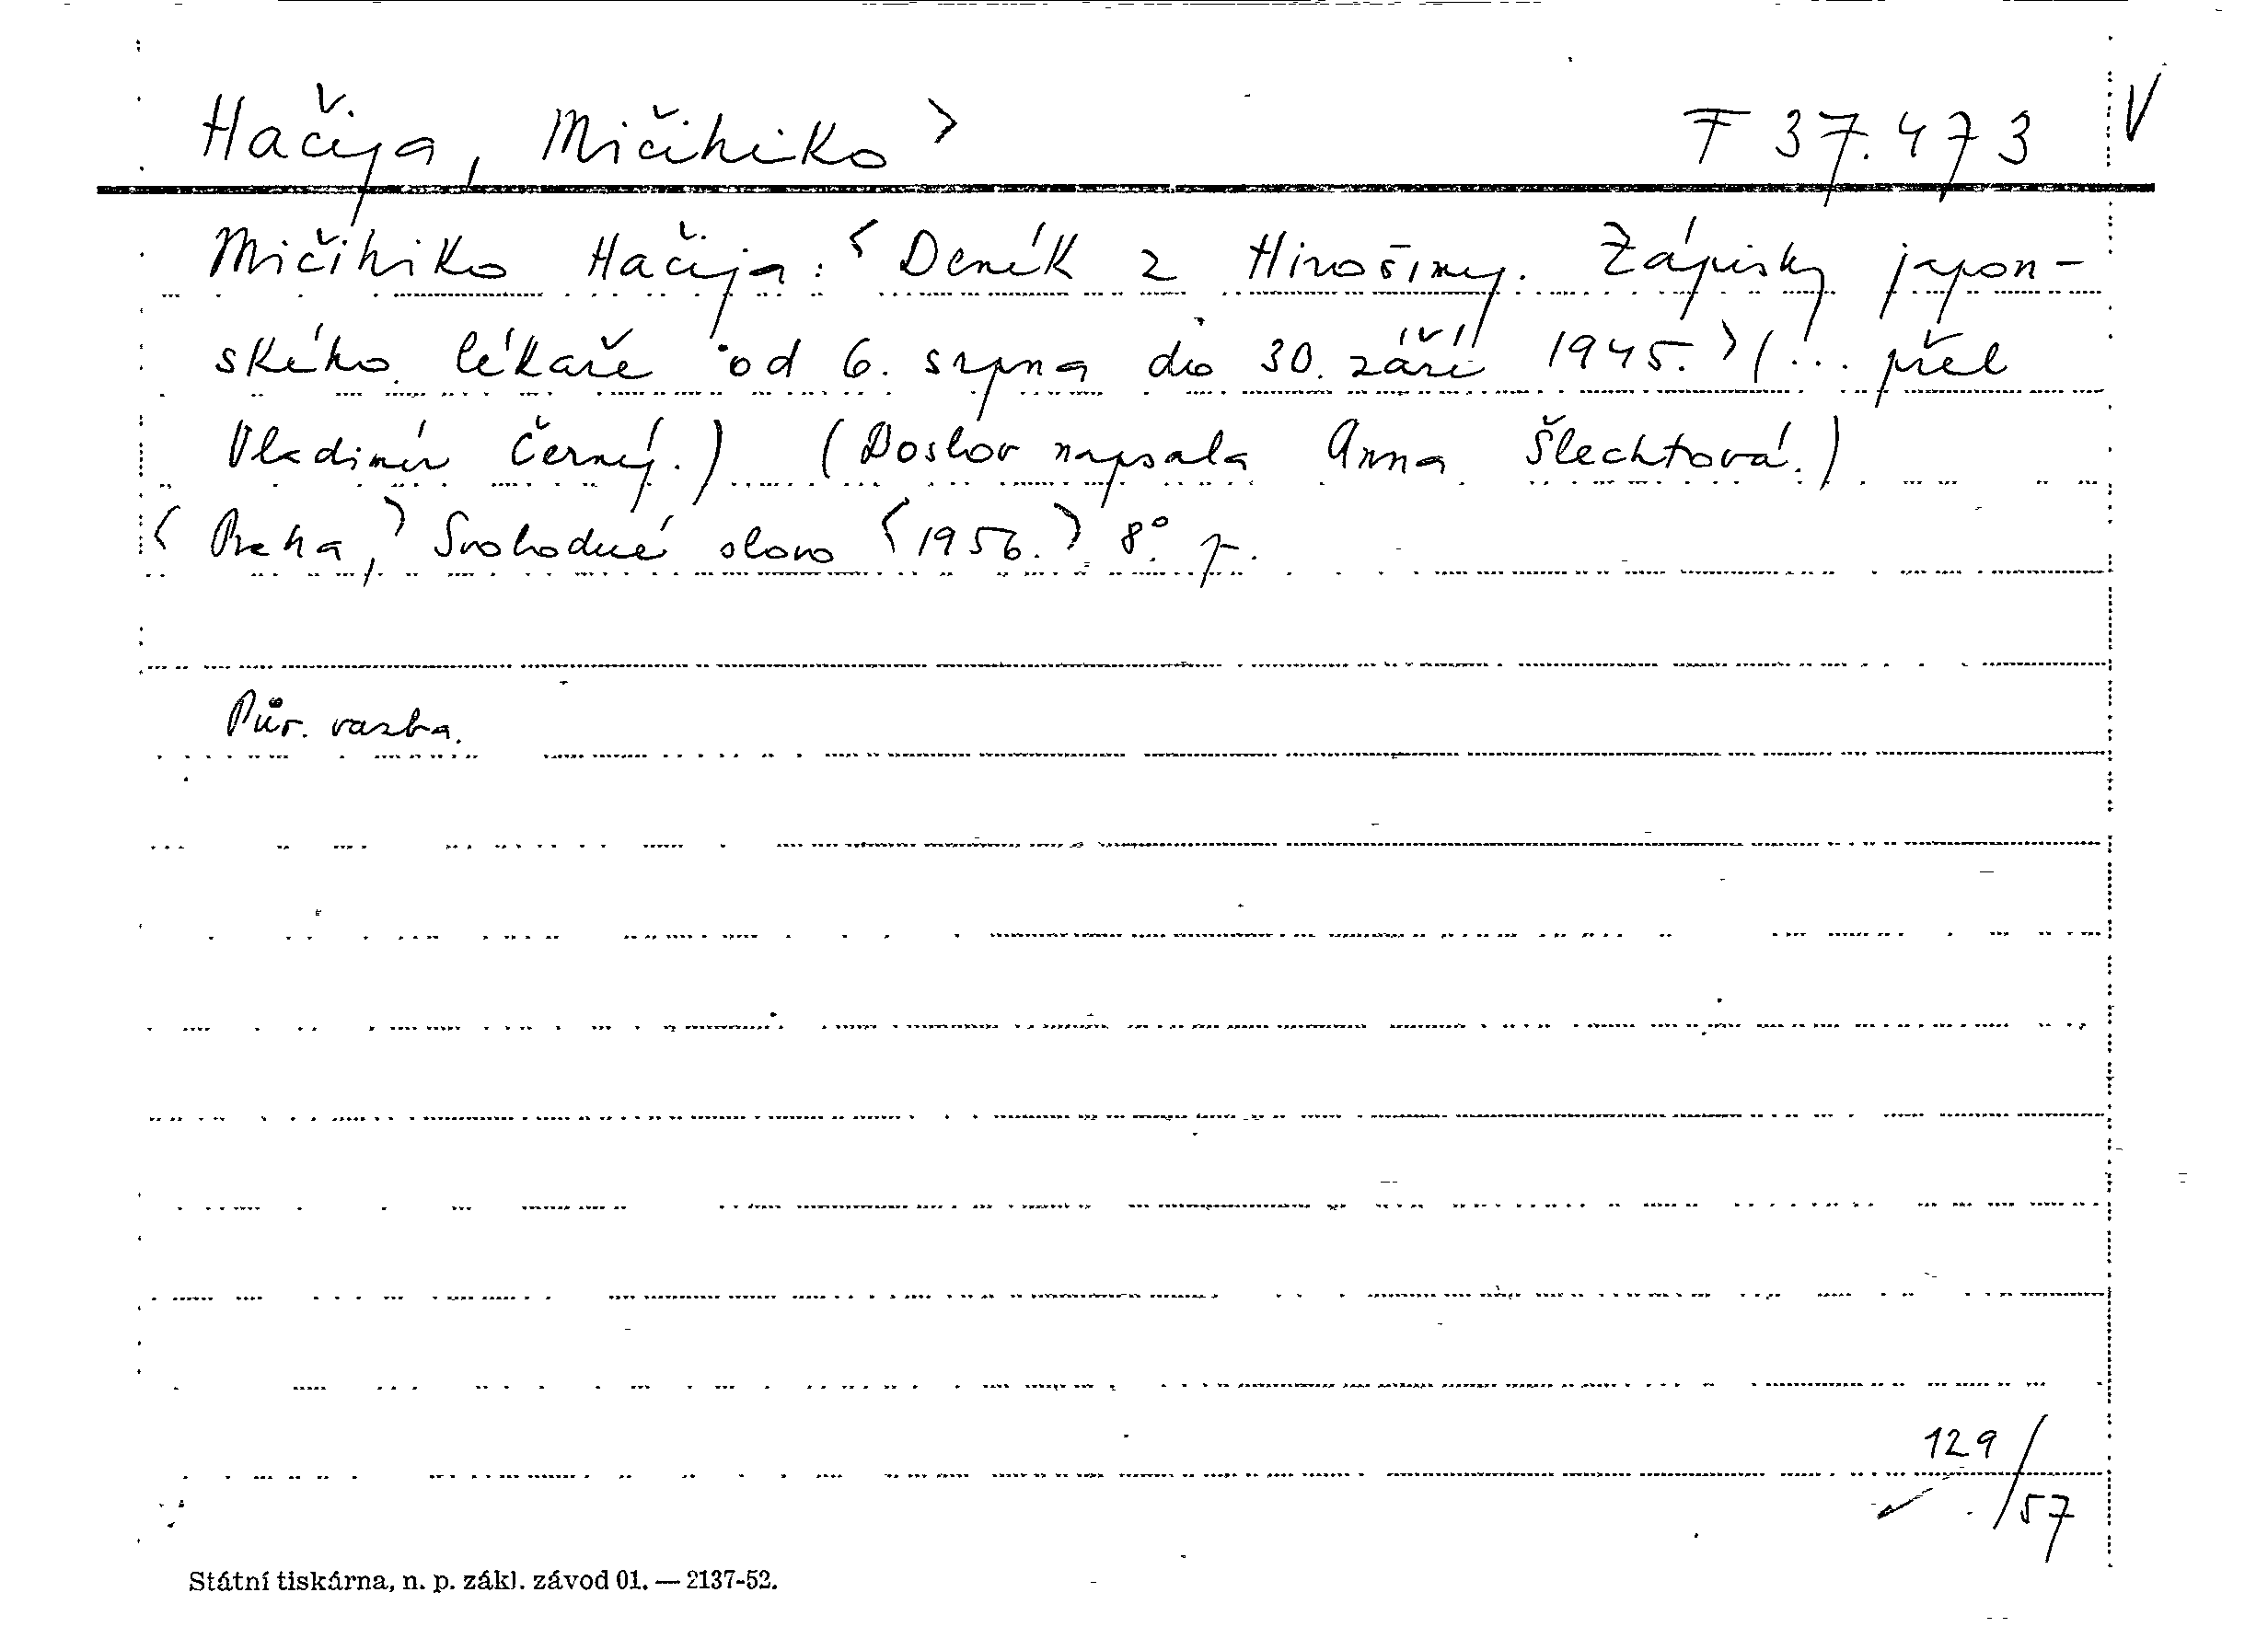 Hačija, Mičihiko > F 37.473 V
Mičihiko Hačija: <Deník z Hirošimy. Zápisky japon-
ského lékaře od 6. srpna do 30. září 1945.> (... přel
Vladimír Černý.) (Doslov napsala Anna Šlechtová.)
<Praha,> Svobodné slovo <1956.> 8°.
Pův. vazba.
129/57
Státní tiskárna, n. p. zákl. závod 01. — 2137-52.